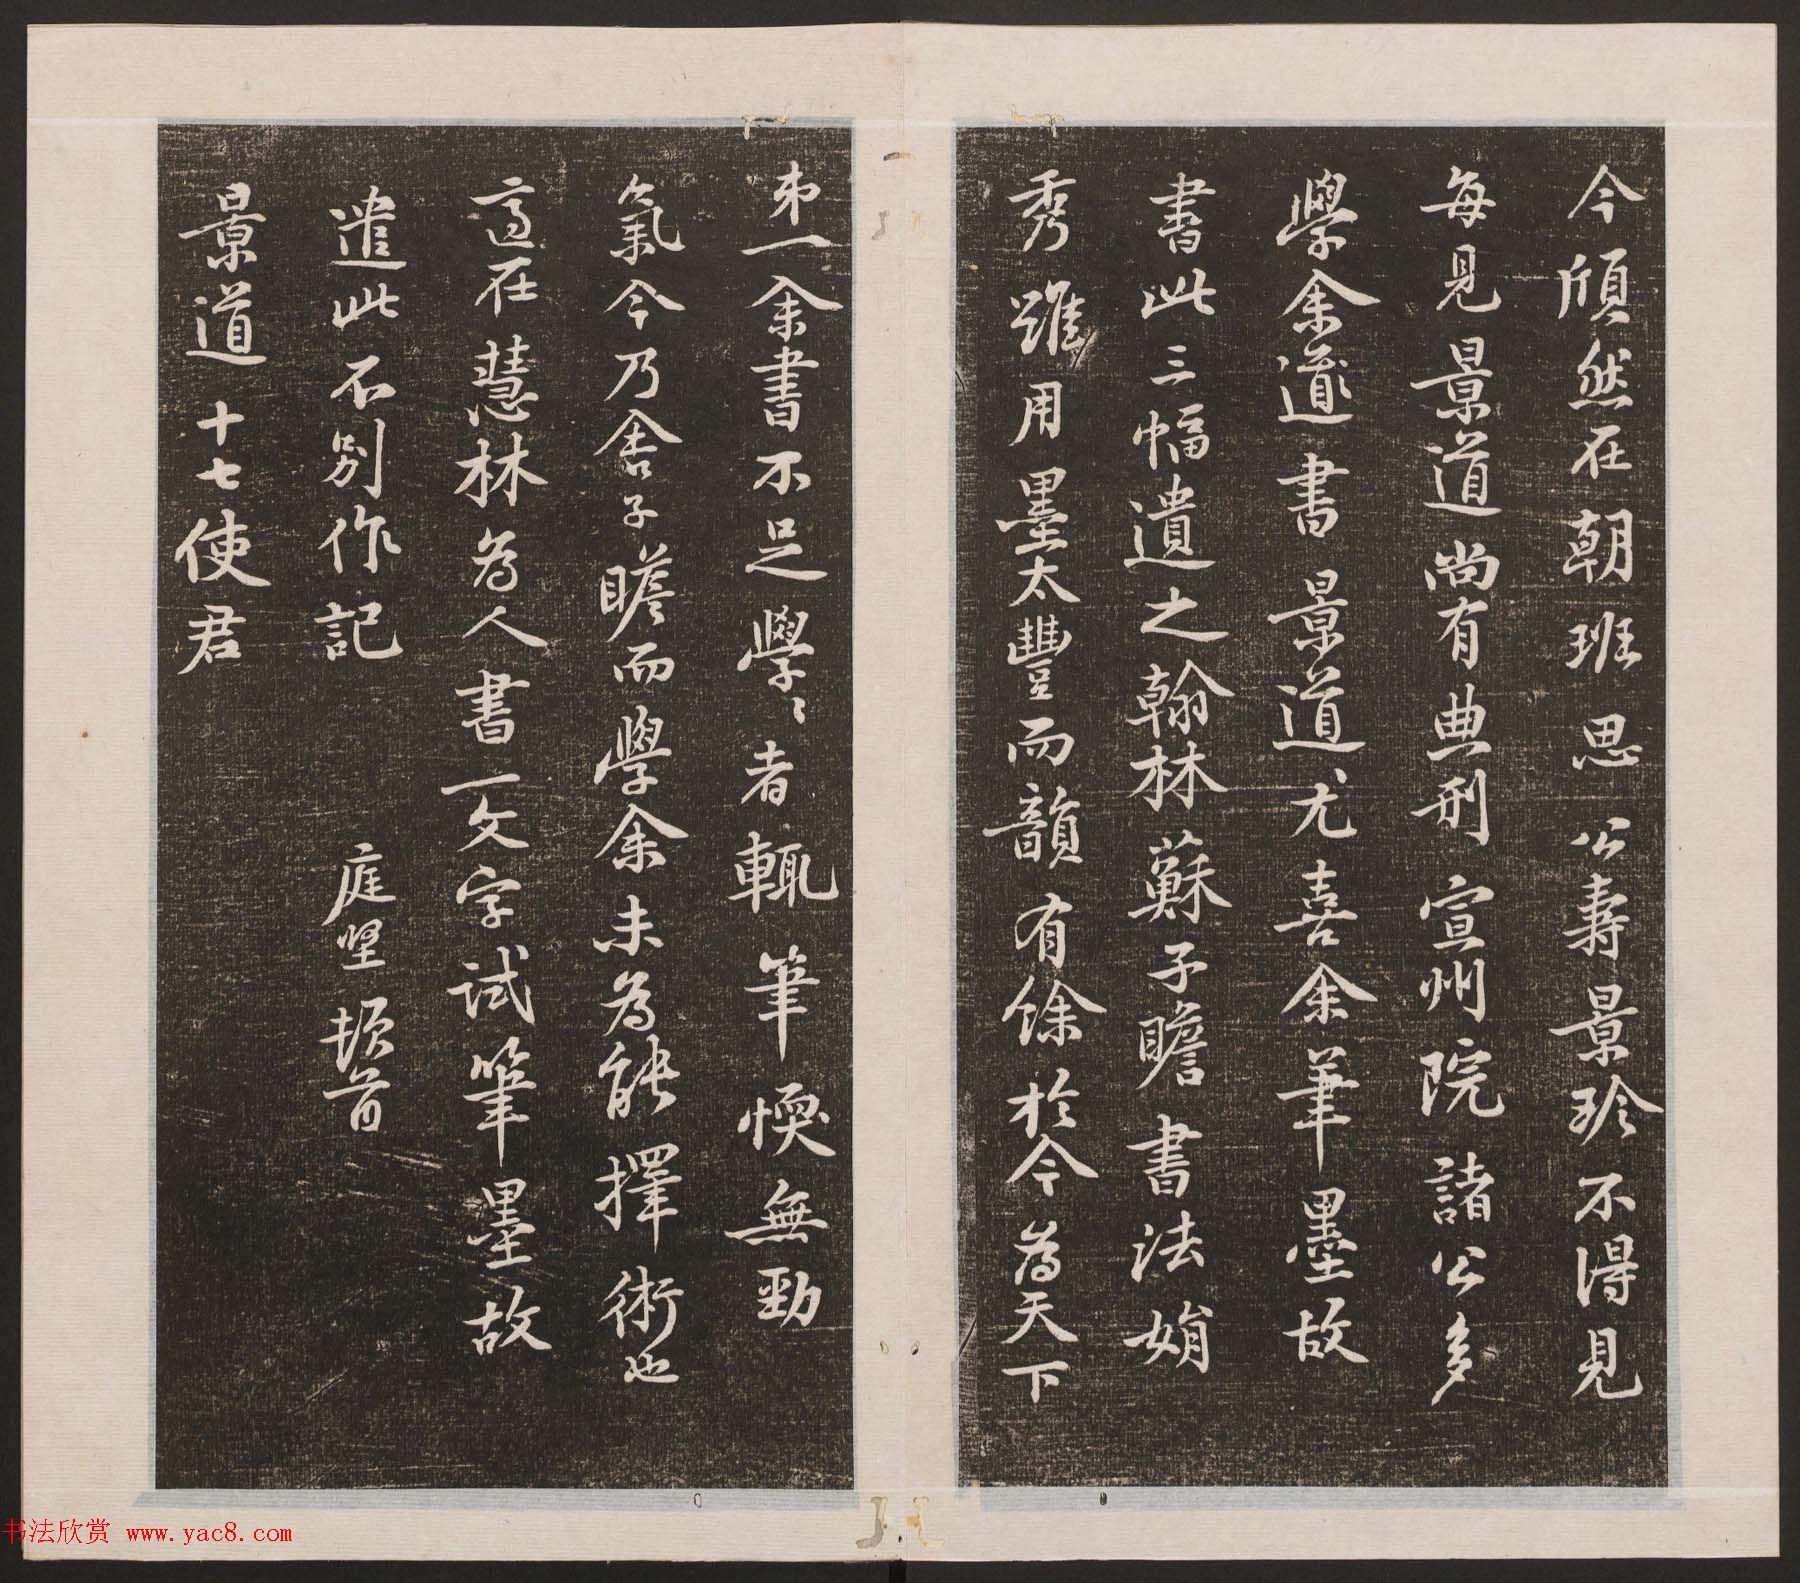 今頎然在朝班思公壽景珍不得見
每見景道尚有典刑宣州院諸公多
學余道書景道尤喜余筆墨故
書此三幅遺之翰林蘇子瞻書法娟
秀雖用墨太豐而韻有餘於今為天下
第一余書不足學學者輒筆愞無勁
氣今乃舍子瞻而學余未為能擇術也
適在慧林為人書一文字試筆墨故
遣此不別作記 庭堅頓首
景道十七使君
书法欣赏 www.yac8.com